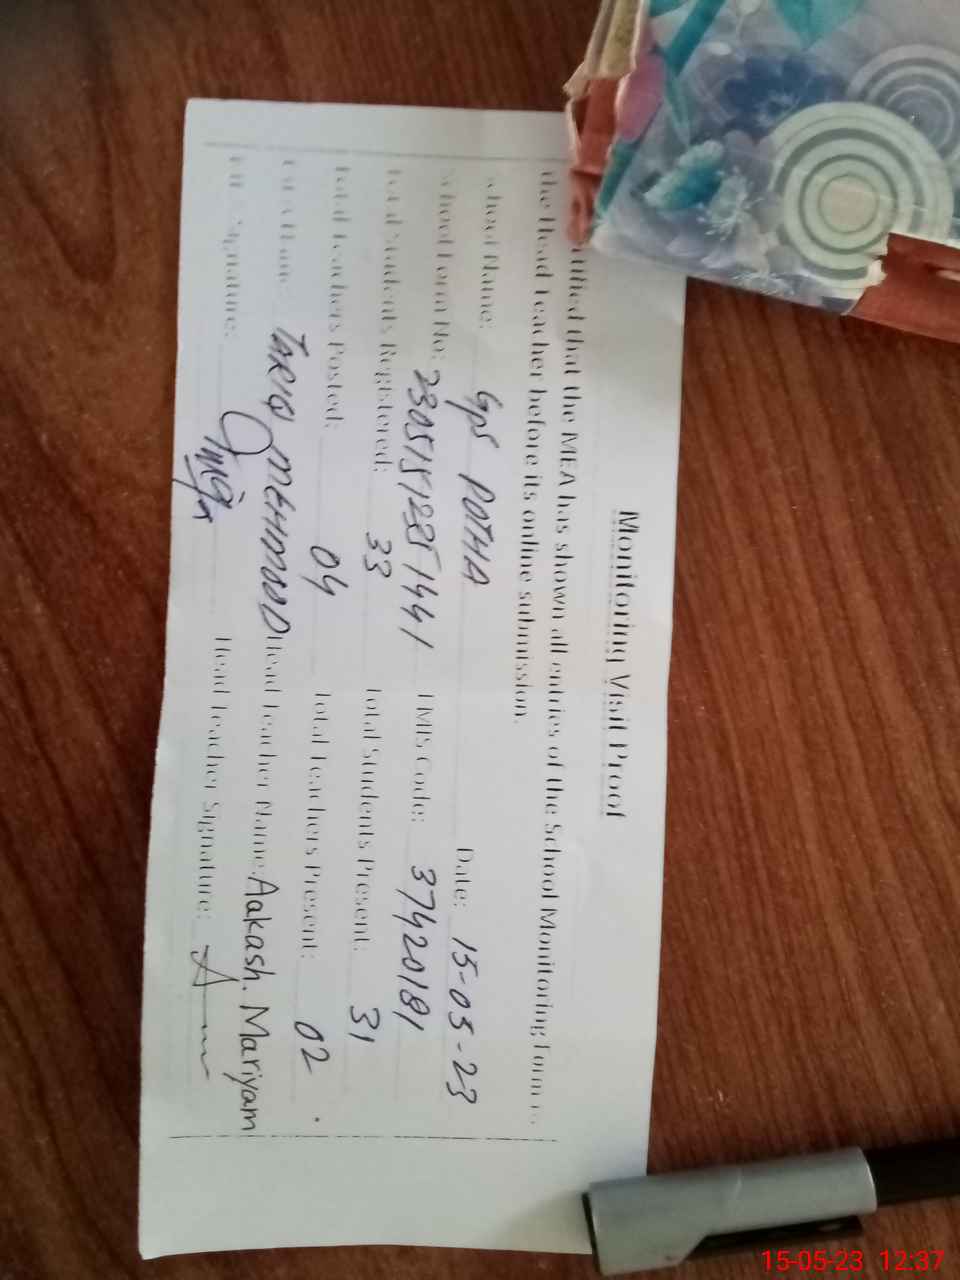 Monitoring Visit Proof
that the MEA has shown all entries of the School Monitoring Form to
the Head Teacher before its online submission.
School Name: GPS POTHA Date: 15-05-23
School Form No: 23051512351441 EMIS Code: 37420181
Total Students Registered: 33 Total Students Present: 31
Total Teachers Posted: 04 Total Teachers Present: 02
Name: TARIQ MEHMOOD Head Teacher Name: Aakash. Mariyam
Signature: Head Teacher Signature:
15-05-23 12:37